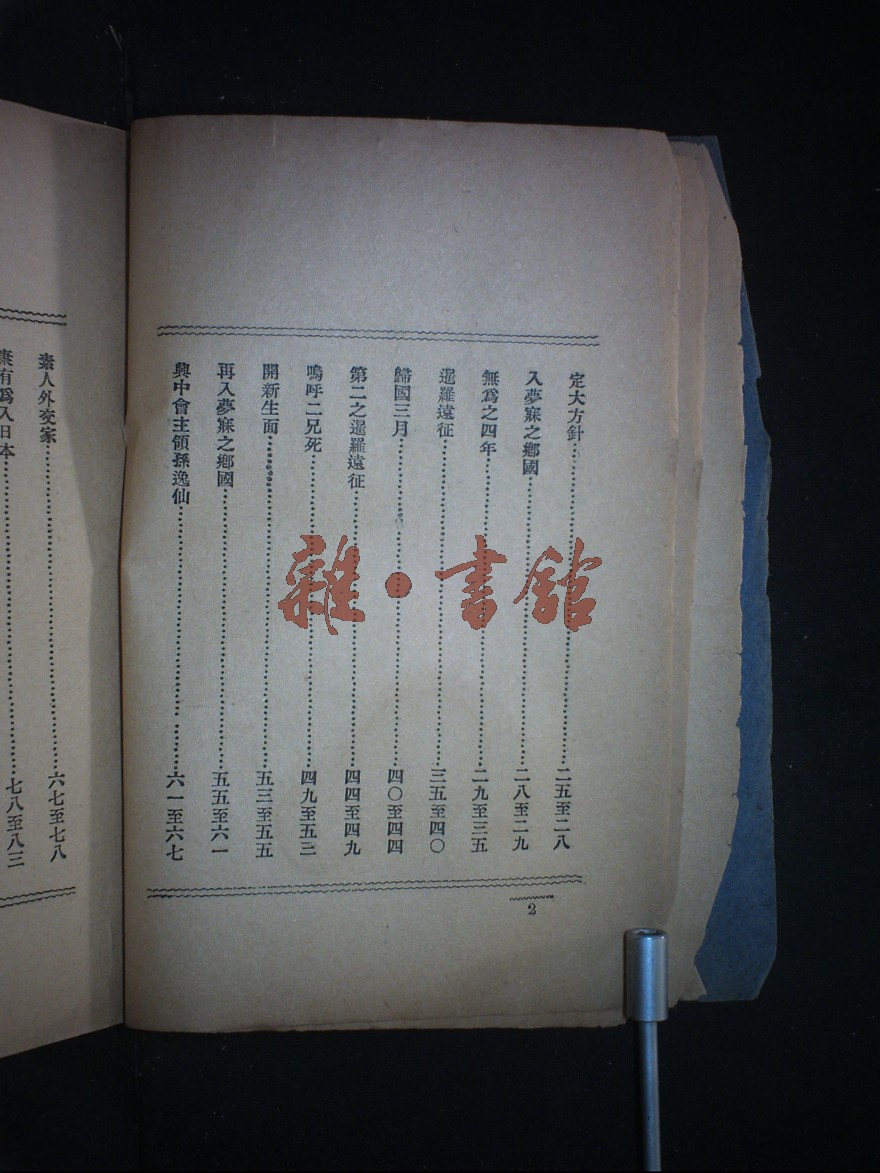 定大方針……二五至二八
入夢寐之鄉國……二八至二九
無爲之四年……二九至三五
暹羅遠征……三五至四〇
歸國三月……四〇至四四
第二之暹羅遠征……四四至四九
嗚呼二兄死……四九至五三
開新生面……五三至五五
再入夢寐之鄉國……五五至六一
興中會主領孫逸仙……六一至六七
2
素人外交家……六七至七八
康有爲入日本……七八至八三
雜·書館